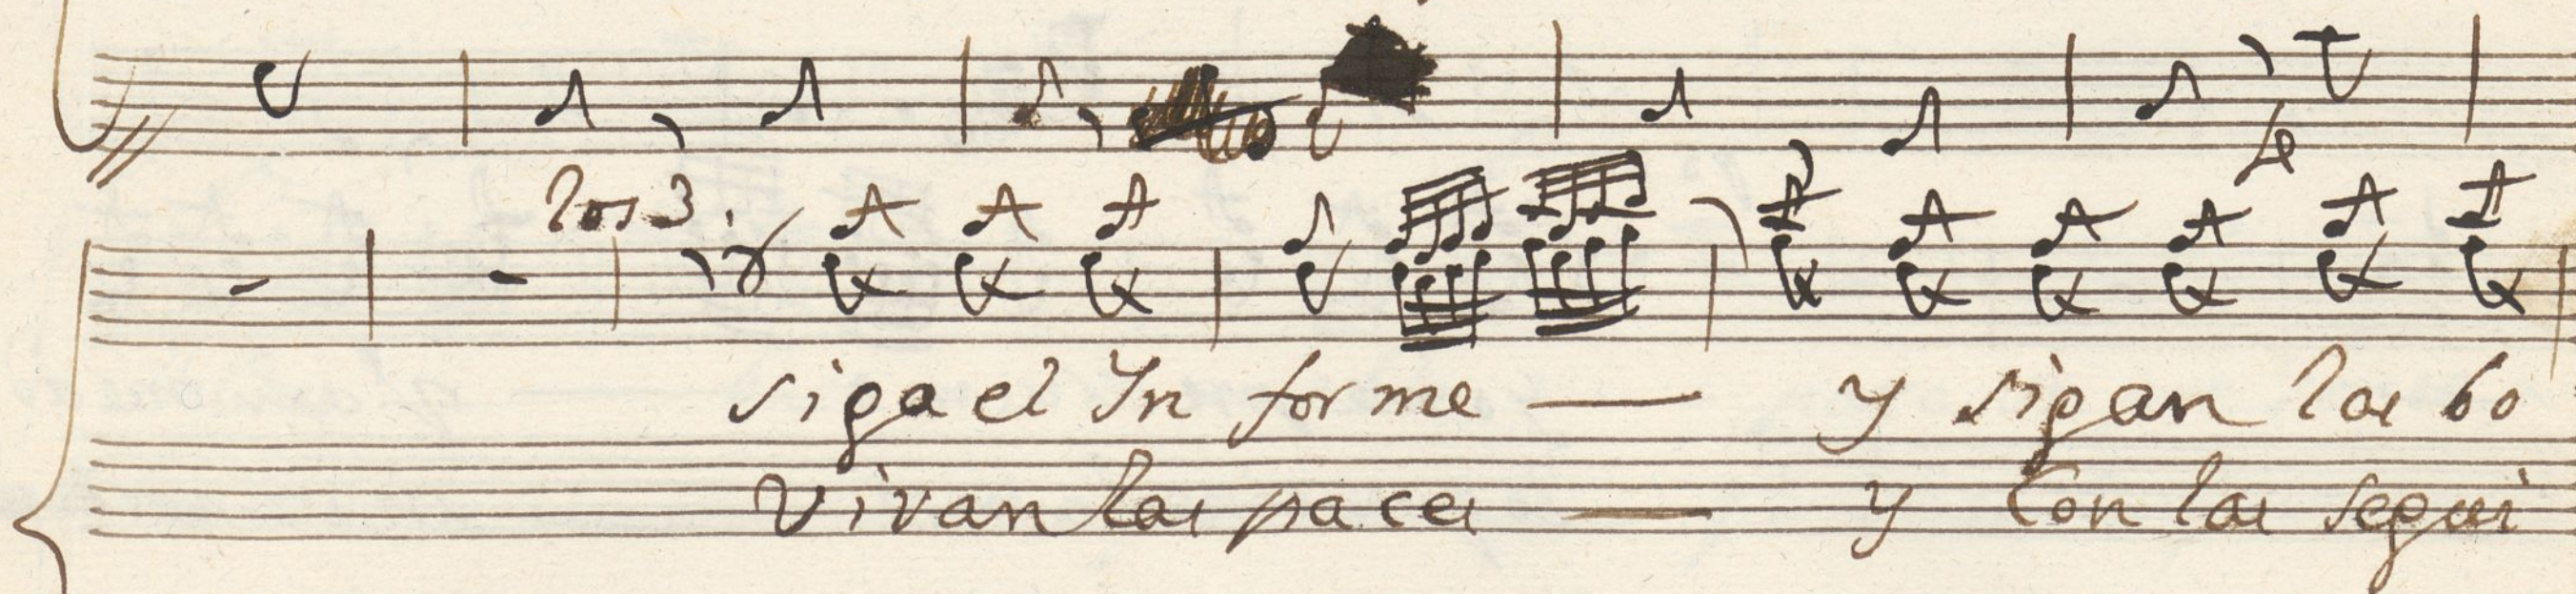 los 3.
siga el Yn forme — y sigan las bo
vivan las paces — y Con las segui